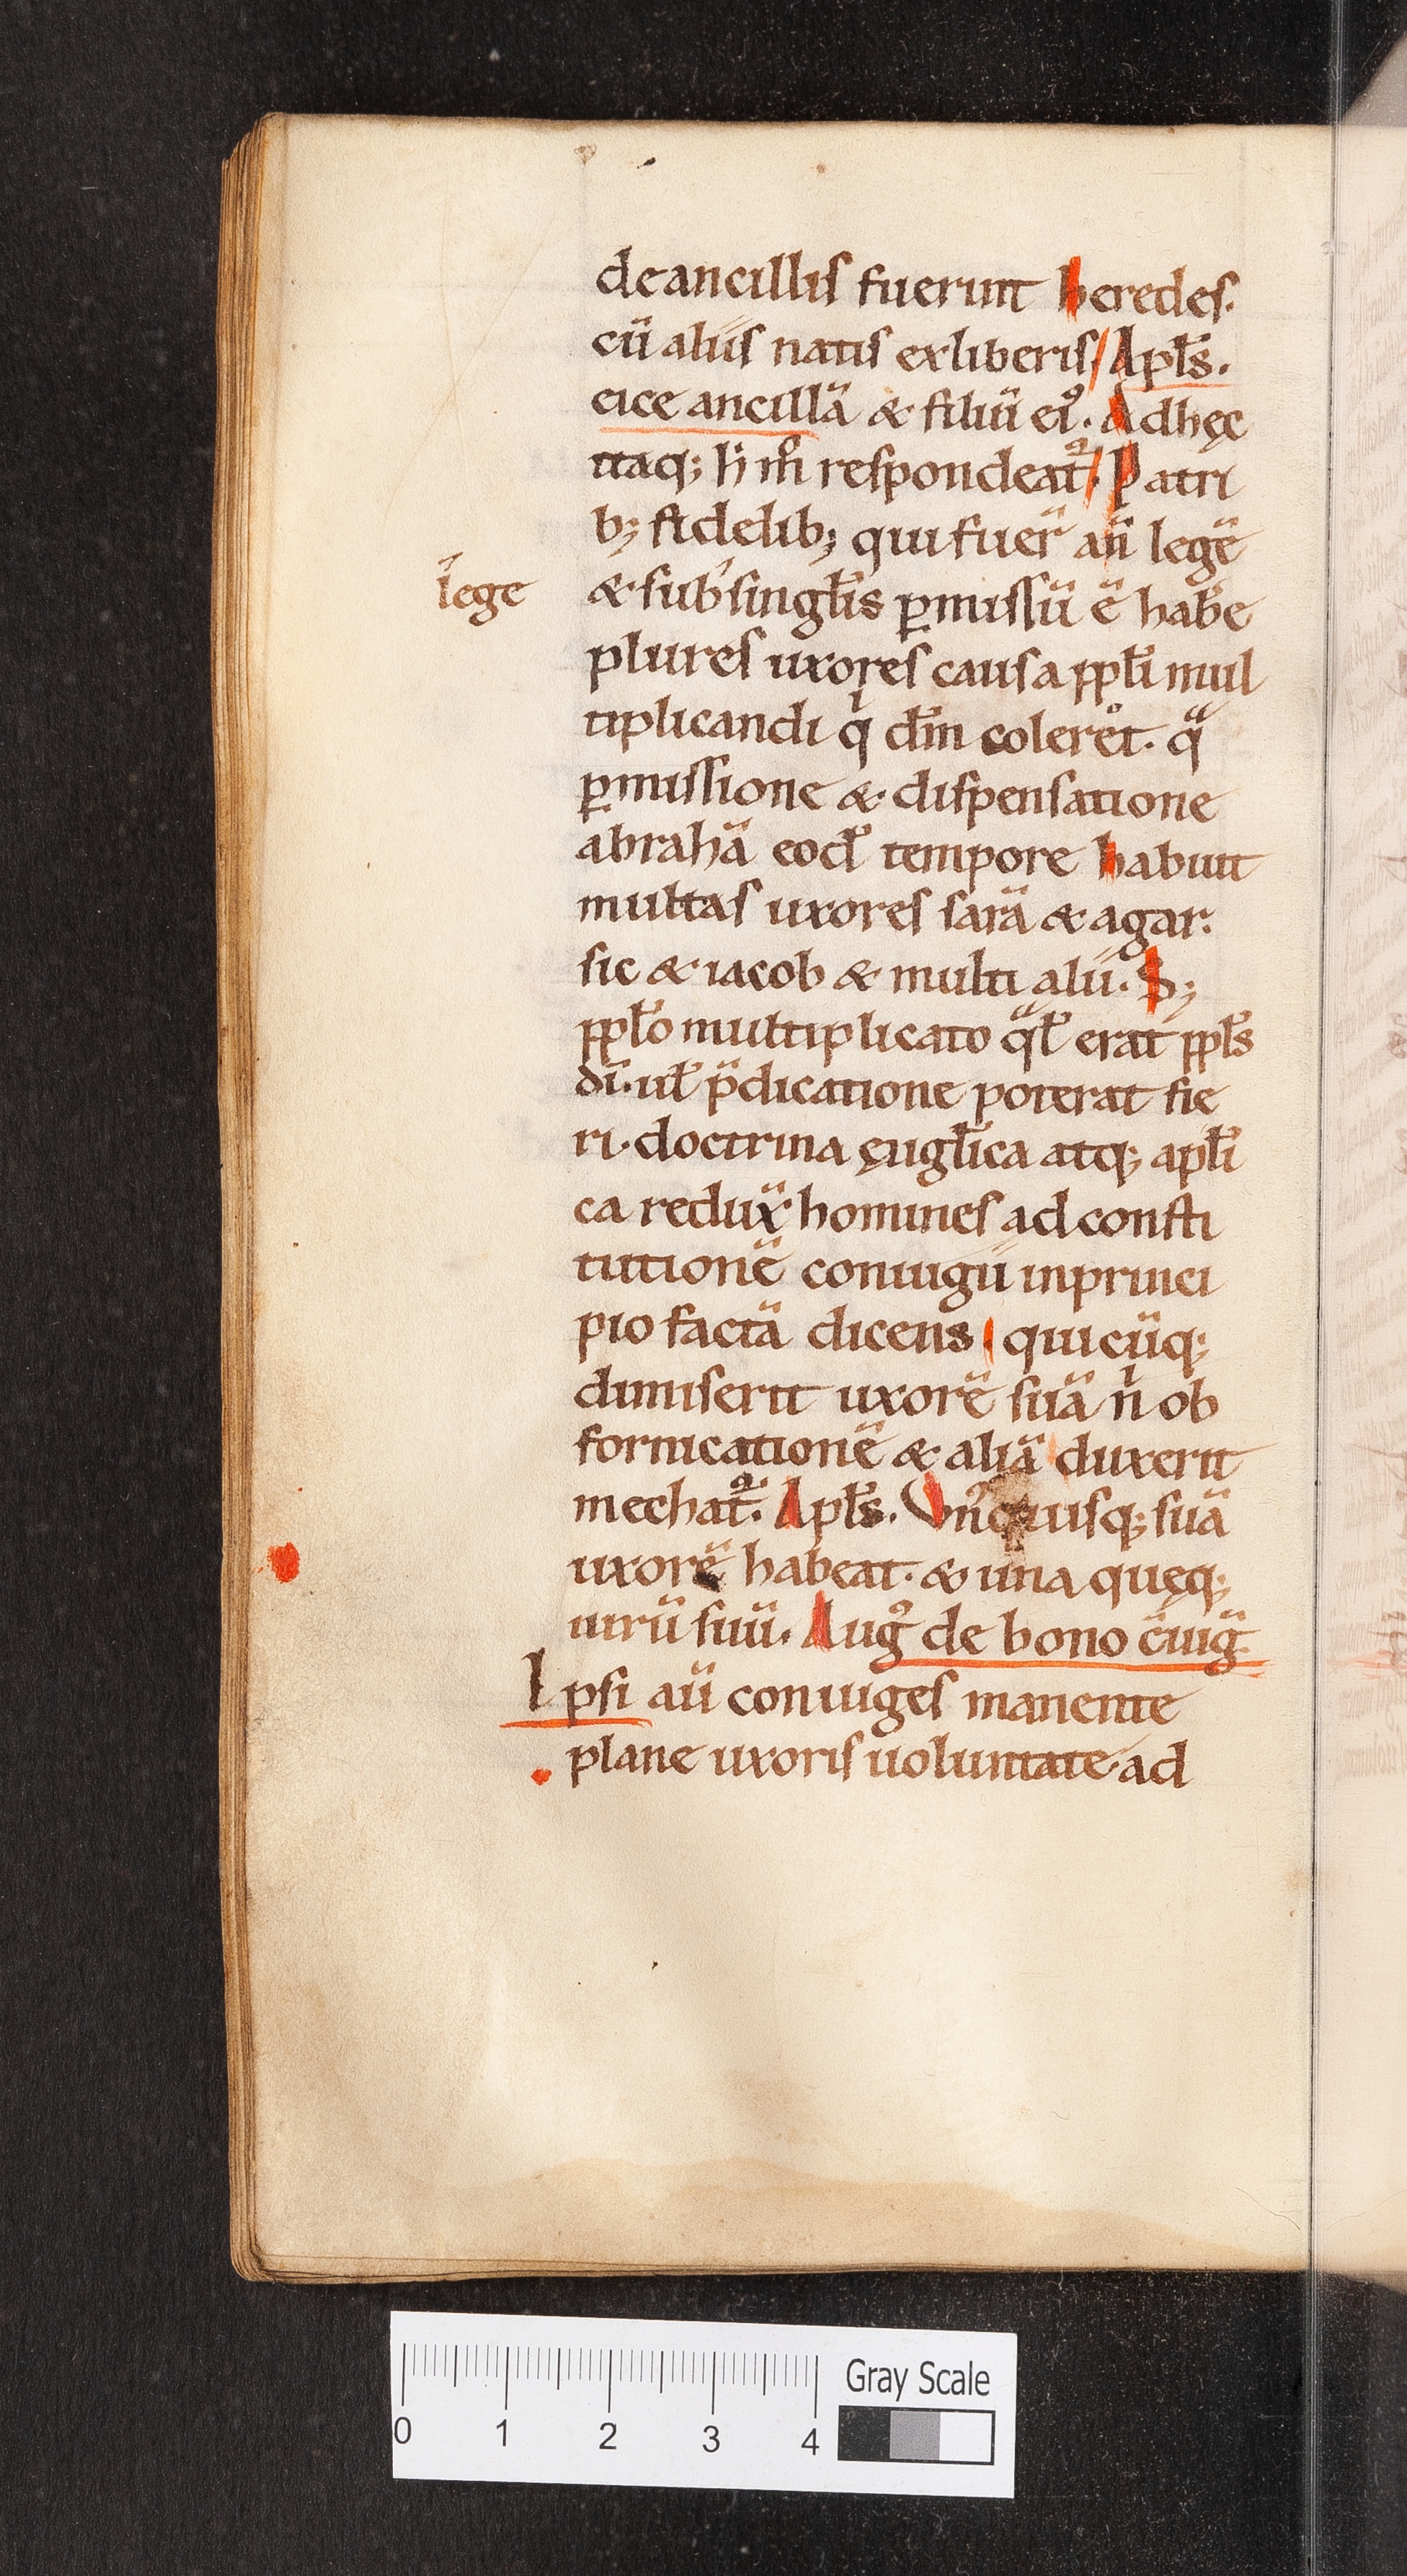 de ancillis fuerunt heredes.
cū aliis natis ex liberis / Apłs.
eice ancillā & filiū eiꝰ. Ad hęc
itaq; hͥ mͦ respondeat᷑ / Patri
b; fidelib; qui fuer̄ an̄ legē
lege
& sub singłis ꝑmissū ē habe
plures uxores causa ppłi mul
tiplicandi qͥ dm̄ coleret. qᷓ
ꝑmissione & dispensatione
abrahā eod̄ tempore habuit
multas uxores sarā & agar.
sic & iacob & multi alii. S;
ppło multiplicato qᷓł erat ppłs
dī. uł p̄dicatione poterat fie
ri. doctrina ęuglīca atq; apłi
ca redux̄ homines ad consti
tutionē coniugii in princi
pio factā dicens / qui cūq;
dimiserit uxorē suā n̄ ob
fornicationē & aliā duxerit
mechat᷑. Apłs. Vnꝰquisq; suā
uxorē habeat. & una quęq;
uirū suū. Augꝰ de bono c̄iuḡ.
Ipsi aū coniuges manente
plane uxoris uoluntate ad
0 1 2 3 4
Gray Scale